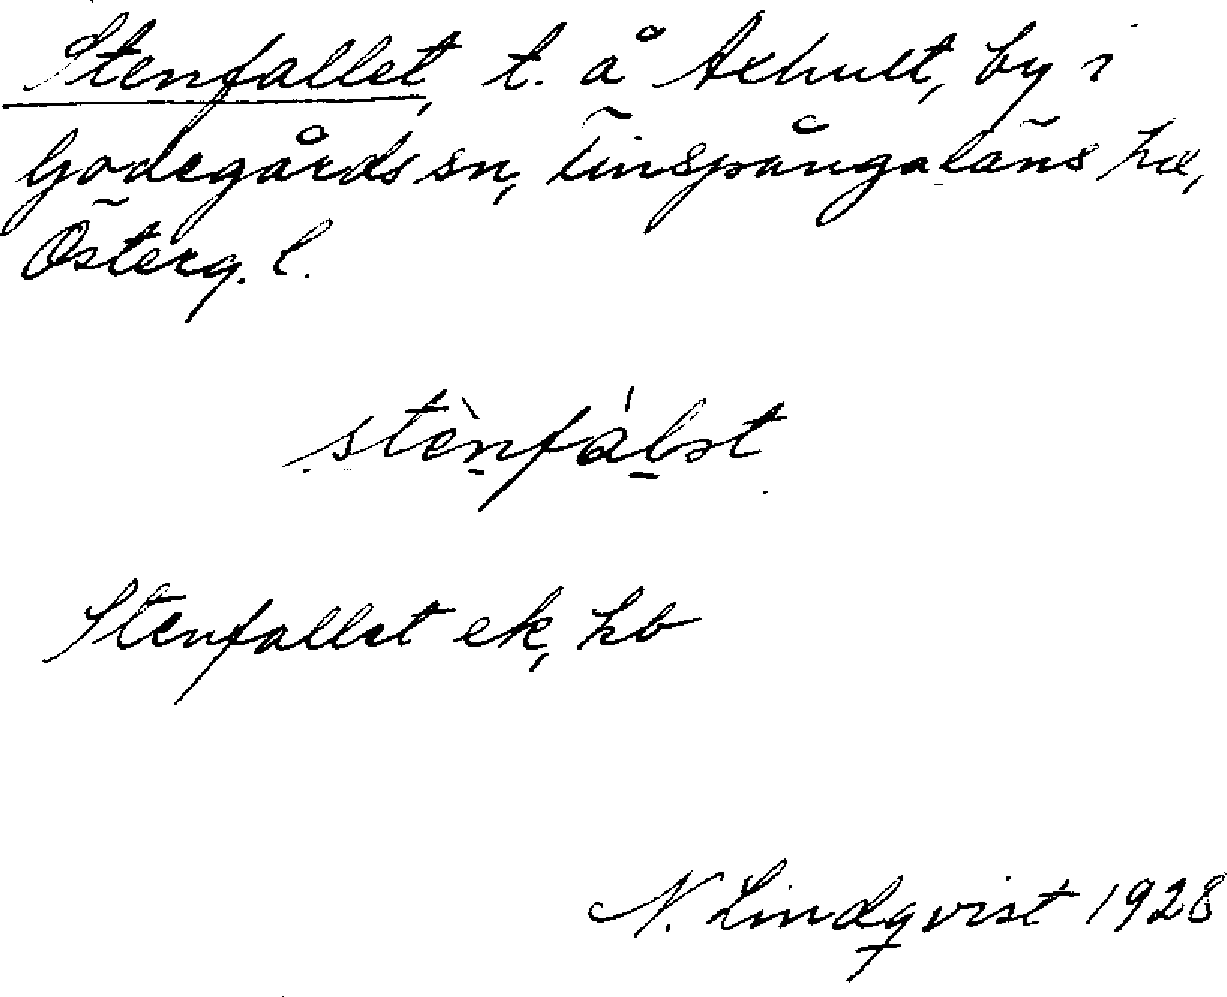 Stenfallet, t. å Axhult, by i
Godegårds sn, Finspångaläns hd,
Österg. l.
stènfálət
Stenfallet ek, hb
N. Lindqvist 1928